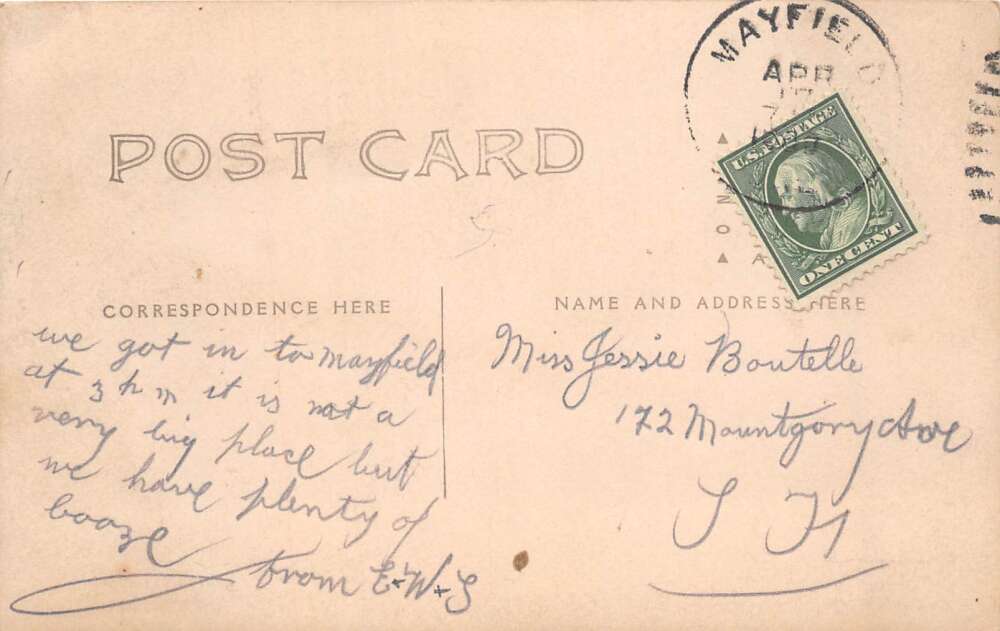 MAYFIELD
APR
POST CARD
U.S. POSTAGE
ONE CENT
CORRESPONDENCE HERE
NAME AND ADDRESS HERE
we got in to mayfield
at 3 P m it is not a
very big place but
we have plenty of
booze
from E+W+S
Miss Jessie Boutelle
172 Mountgory Ave
S F